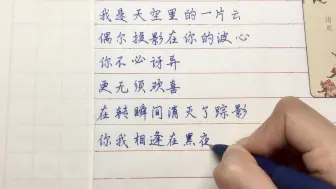 我是天空里的一片云
偶尔投影在你的波心
你不必讶异
更无须欢喜
在转瞬间消灭了踪影
你我相逢在黑夜